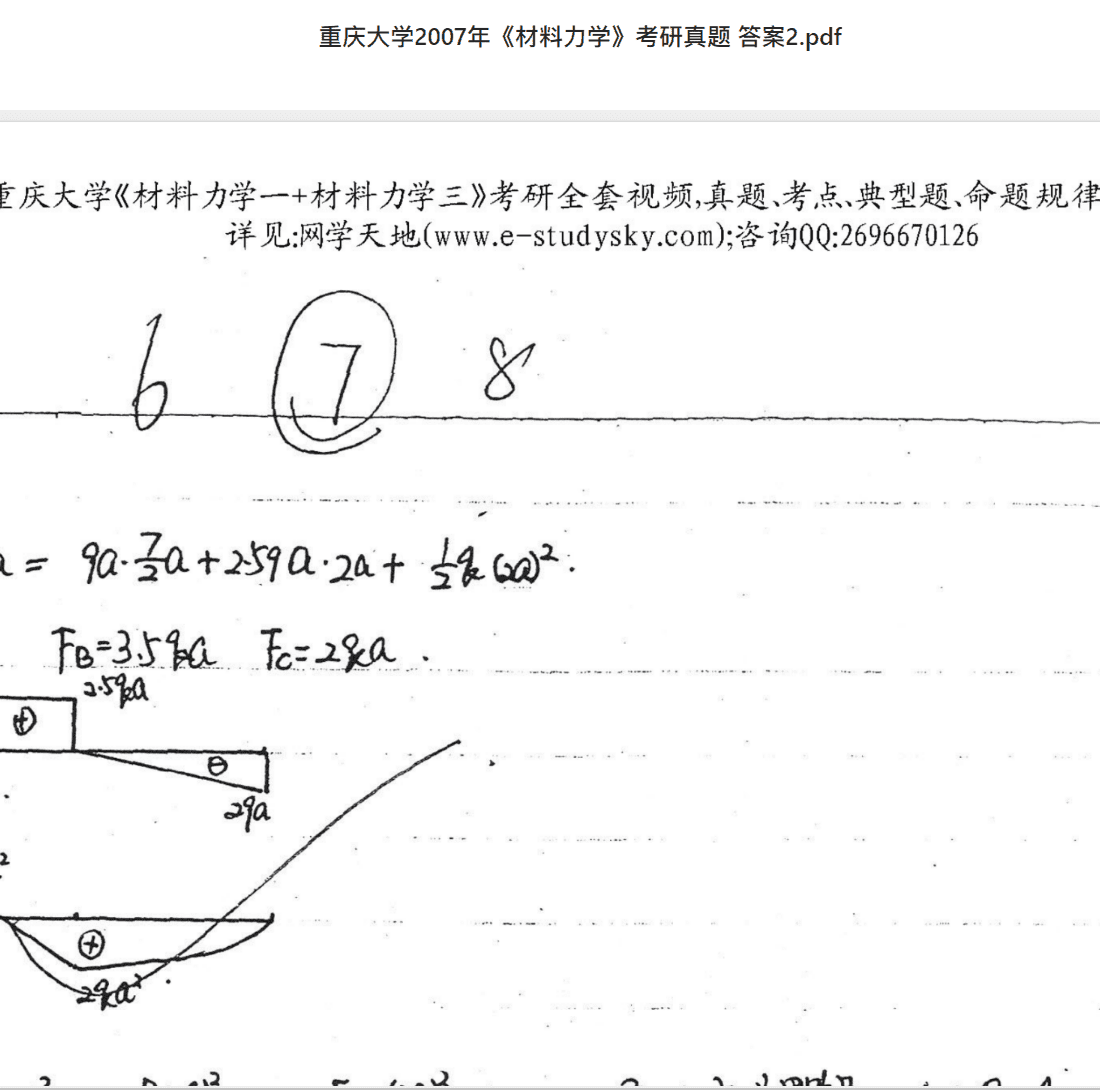 重庆大学2007年《材料力学》考研真题 答案2.pdf
重庆大学《材料力学一+材料力学三》考研全套视频,真题、考点、典型题、命题规律
详见:网学天地(www.e-studysky.com);咨询QQ:2696670126
6 7 8
a = qa·7/2a+2.5qa·2a+ 1/2q(2a)².
F_B=3.5qa F_C=2qa .
2.5qa
⊕
⊖
2qa
2
⊕
2qa².